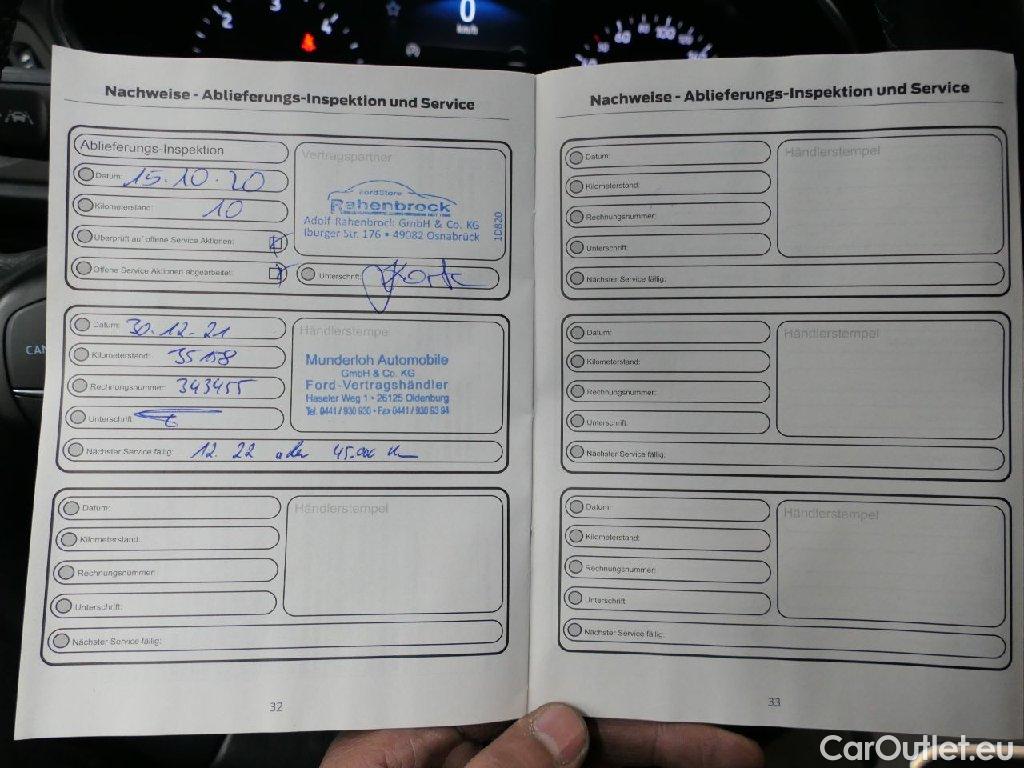 2
3
4
0
km/h
60
100
CAN
Nachweise - Ablieferungs-Inspektion und Service
Ablieferungs-Inspektion
Datum: 15.10.20
Kilometerstand: 10
Überprüft auf offene Service Aktionen:
Offene Service Aktionen abgearbeitet:
Vertragspartner
FordStore
Rahenbrock
Adolf Rahenbrock GmbH & Co. KG
Iburger Str. 176 • 49082 Osnabrück
10820
Unterschrift:
Datum: 30.12.21
Kilometerstand: 35158
Rechnungsnummer: 343455
Unterschrift:
Nächster Service fällig: 12.22 oder 45.000 km
Händlerstempel
Munderloh Automobile
GmbH & Co. KG
Ford-Vertragshändler
Haseler Weg 1 • 26125 Oldenburg
Tel. 0441 / 930 630 • Fax 0441 / 930 63 94
Datum:
Kilometerstand:
Rechnungsnummer:
Unterschrift:
Nächster Service fällig:
Händlerstempel
32
Nachweise - Ablieferungs-Inspektion und Service
Datum:
Kilometerstand:
Rechnungsnummer:
Unterschrift:
Nächster Service fällig:
Händlerstempel
Datum:
Kilometerstand:
Rechnungsnummer:
Unterschrift:
Nächster Service fällig:
Händlerstempel
Datum:
Kilometerstand:
Rechnungsnummer:
Unterschrift:
Nächster Service fällig:
Händlerstempel
33
CarOutlet.eu